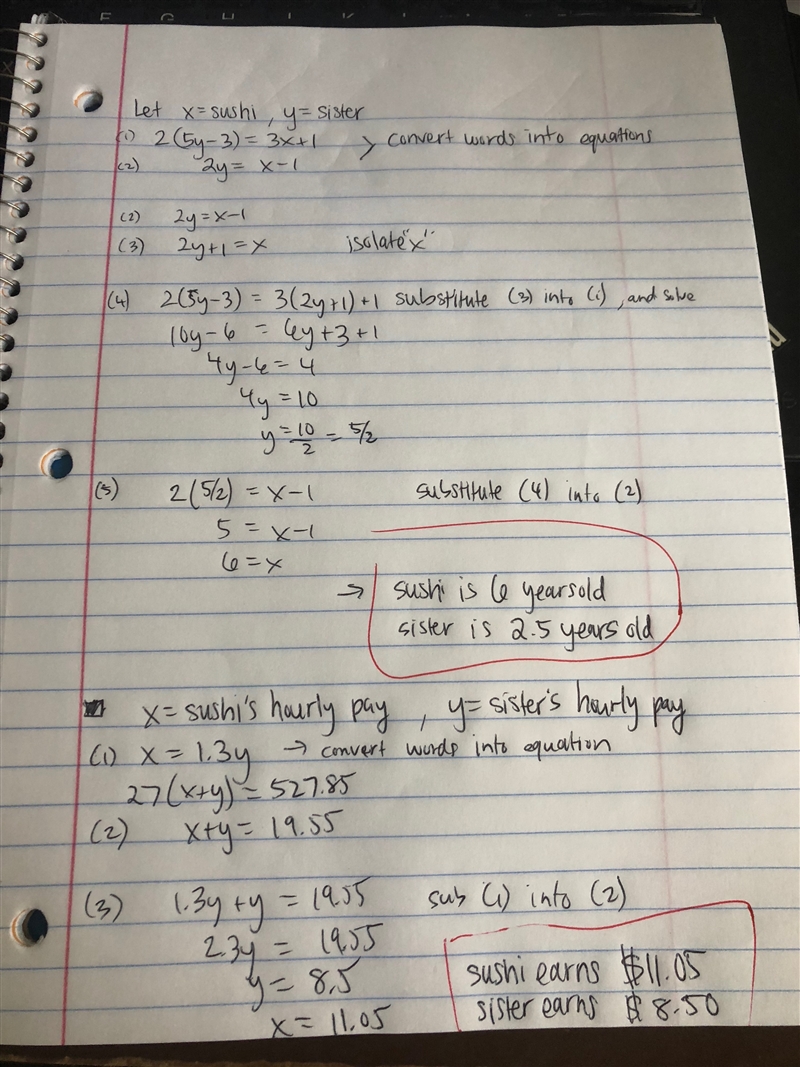 E G H I K L
Let x=sushi, y=sister
(1) 2(5y-3) = 3x+1 > convert words into equations
(2) 2y = x-1
(2) 2y = x-1
(3) 2y+1 = x isolate "x"
(4) 2(5y-3) = 3(2y+1)+1 substitute (3) into (1), and solve
10y-6 = 6y+3+1
4y-6 = 4
4y = 10
y = 10/2 = 5/2
(5) 2(5/2) = x-1 substitute (4) into (2)
5 = x-1
6 = x
→ sushi is 6 years old
sister is 2.5 years old
x = sushi's hourly pay, y = sister's hourly pay
(1) x = 1.3y → convert words into equation
27(x+y) = 527.85
(2) x+y = 19.55
(3) 1.3y+y = 19.55 sub (1) into (2)
2.3y = 19.55
y = 8.5
x = 11.05
sushi earns $11.05
sister earns $8.50